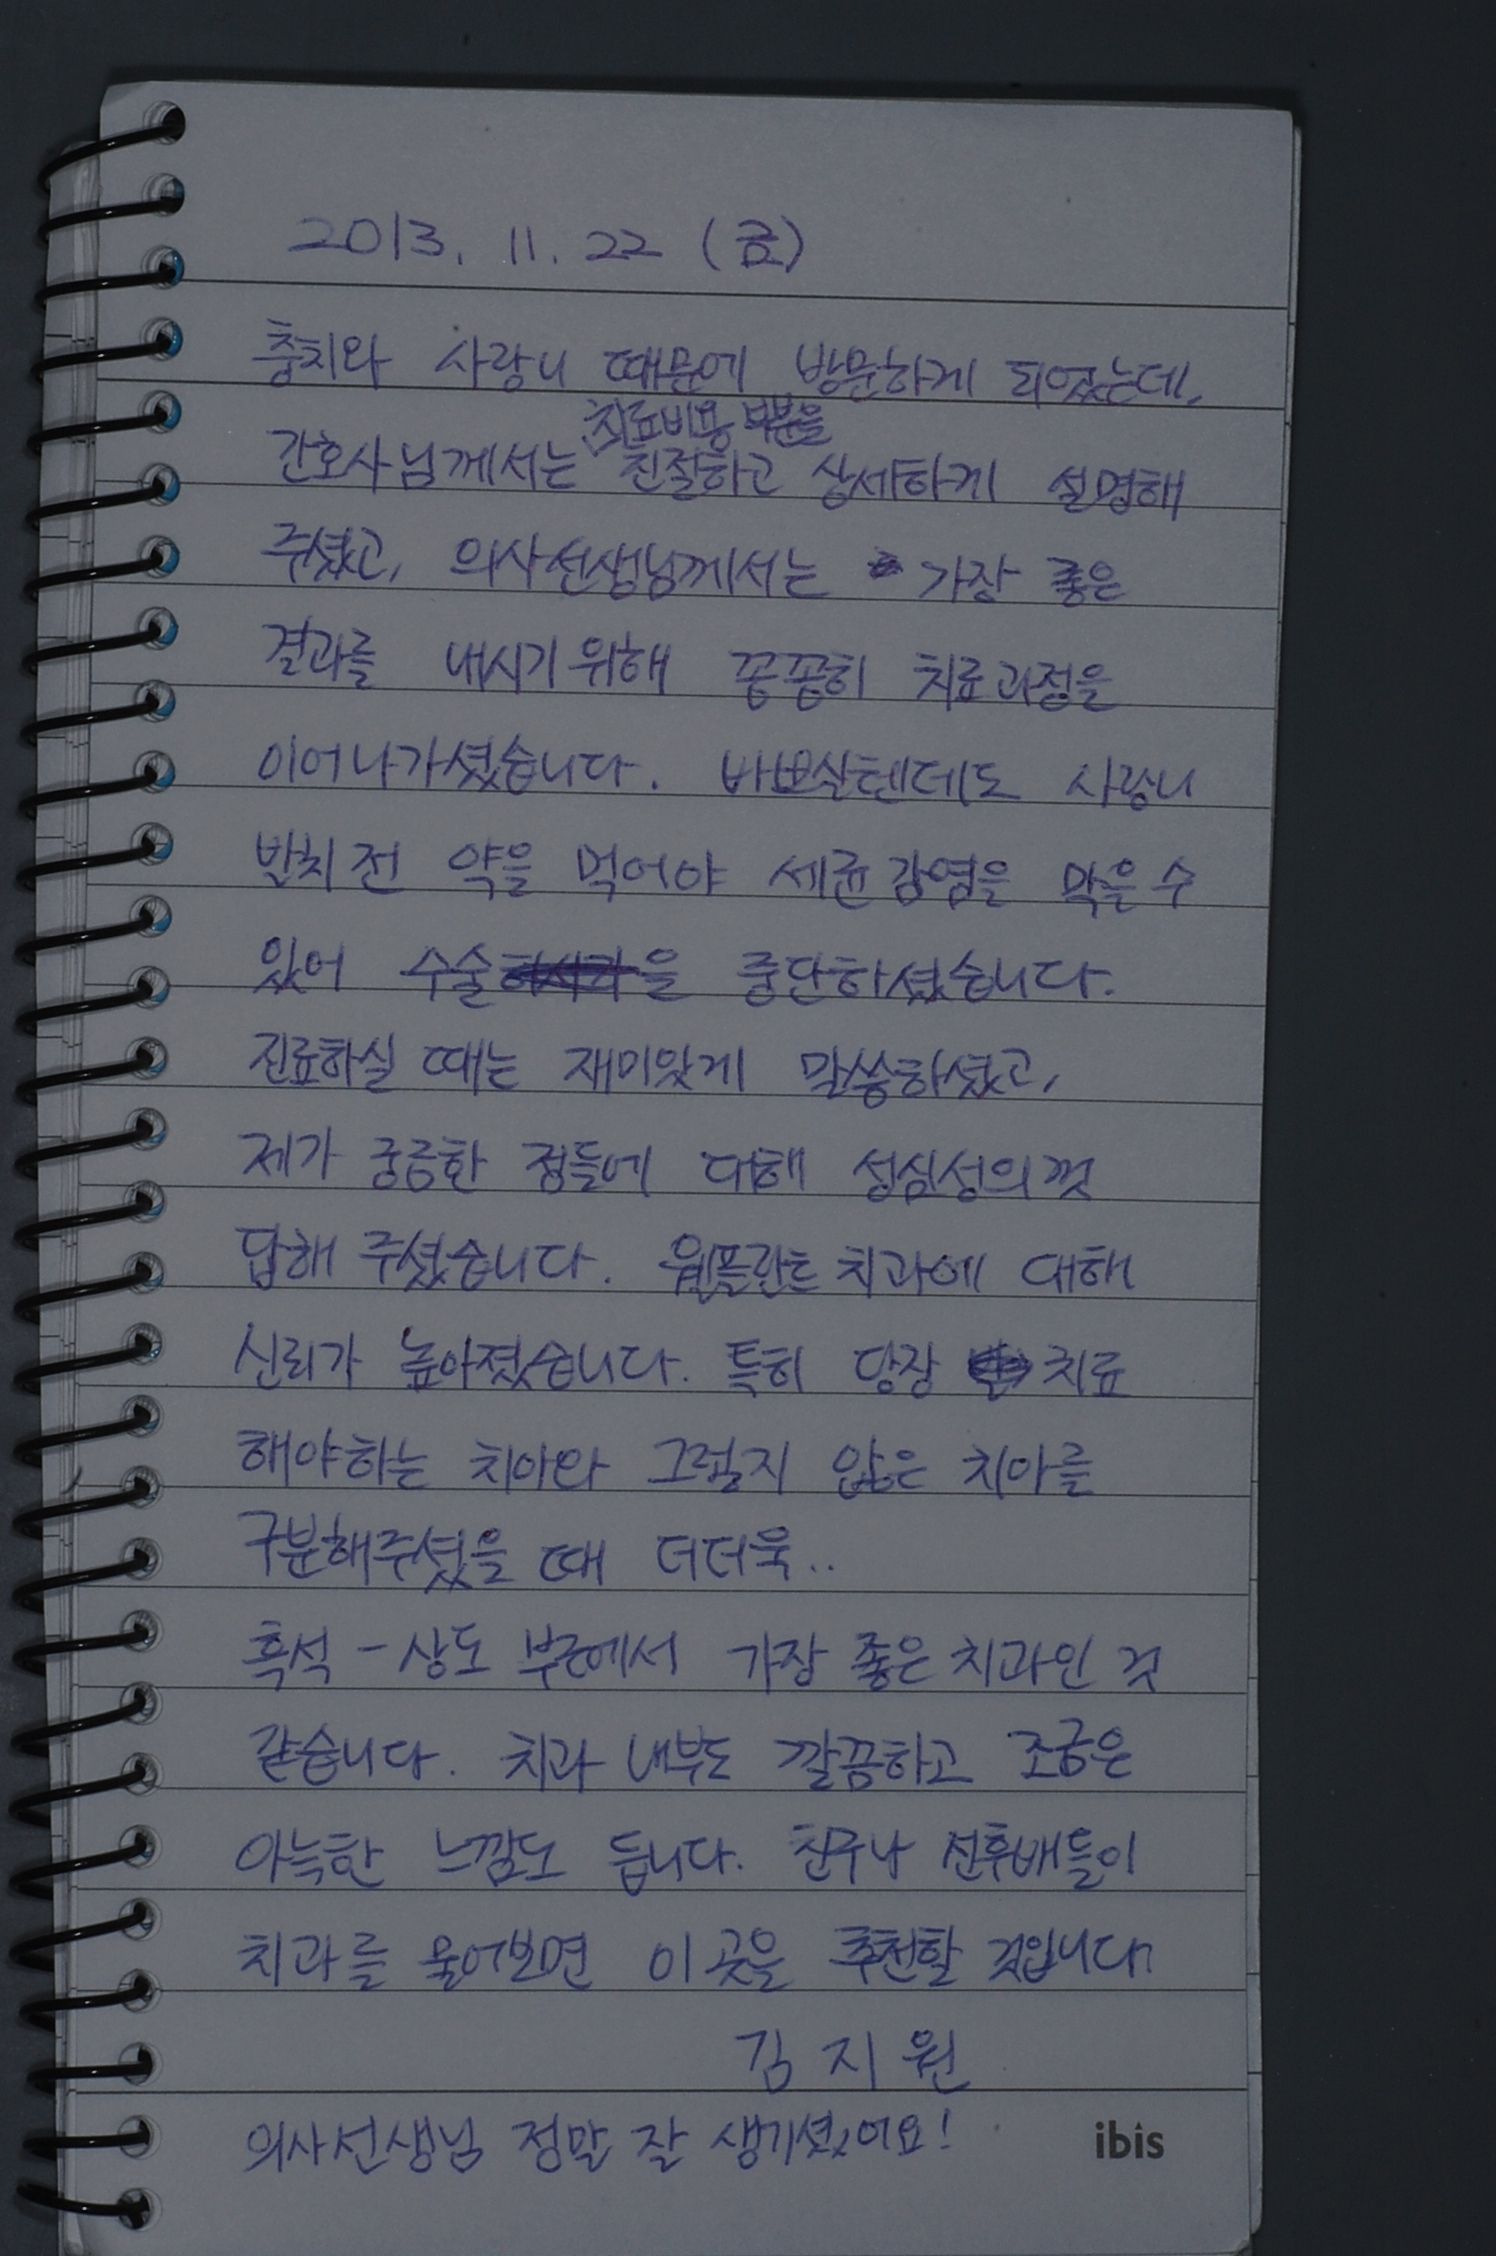 2013. 11. 22 (금)
충치와 사랑니 때문에 방문하게 되었는데,
치료비용 부분을
간호사님께서는 친절하고 상세하게 설명해
주셨고, 의사선생님께서는 가장 좋은
결과를 내시기 위해 꼼꼼히 치료과정을
이어나가셨습니다. 바쁘실텐데도 사랑니
발치 전 약을 먹어야 세균감염을 막을 수
있어 수술을 중단하셨습니다.
진료하실 때는 재미있게 말씀하셨고,
제가 궁금한 점들에 대해 성심성의껏
답해 주셨습니다. 웰플란트 치과에 대해
신뢰가 높아졌습니다. 특히 당장 치료
해야하는 치아와 그렇지 않은 치아를
구분해주셨을 때 더더욱..
흑석 - 상도 부근에서 가장 좋은 치과인 것
같습니다. 치과 내부도 깔끔하고 조금은
아늑한 느낌도 듭니다. 친구나 선후배들이
치과를 물어보면 이 곳을 추천할 것입니다.
김 지 원
의사선생님 정말 잘 생기셨어요!
ibis